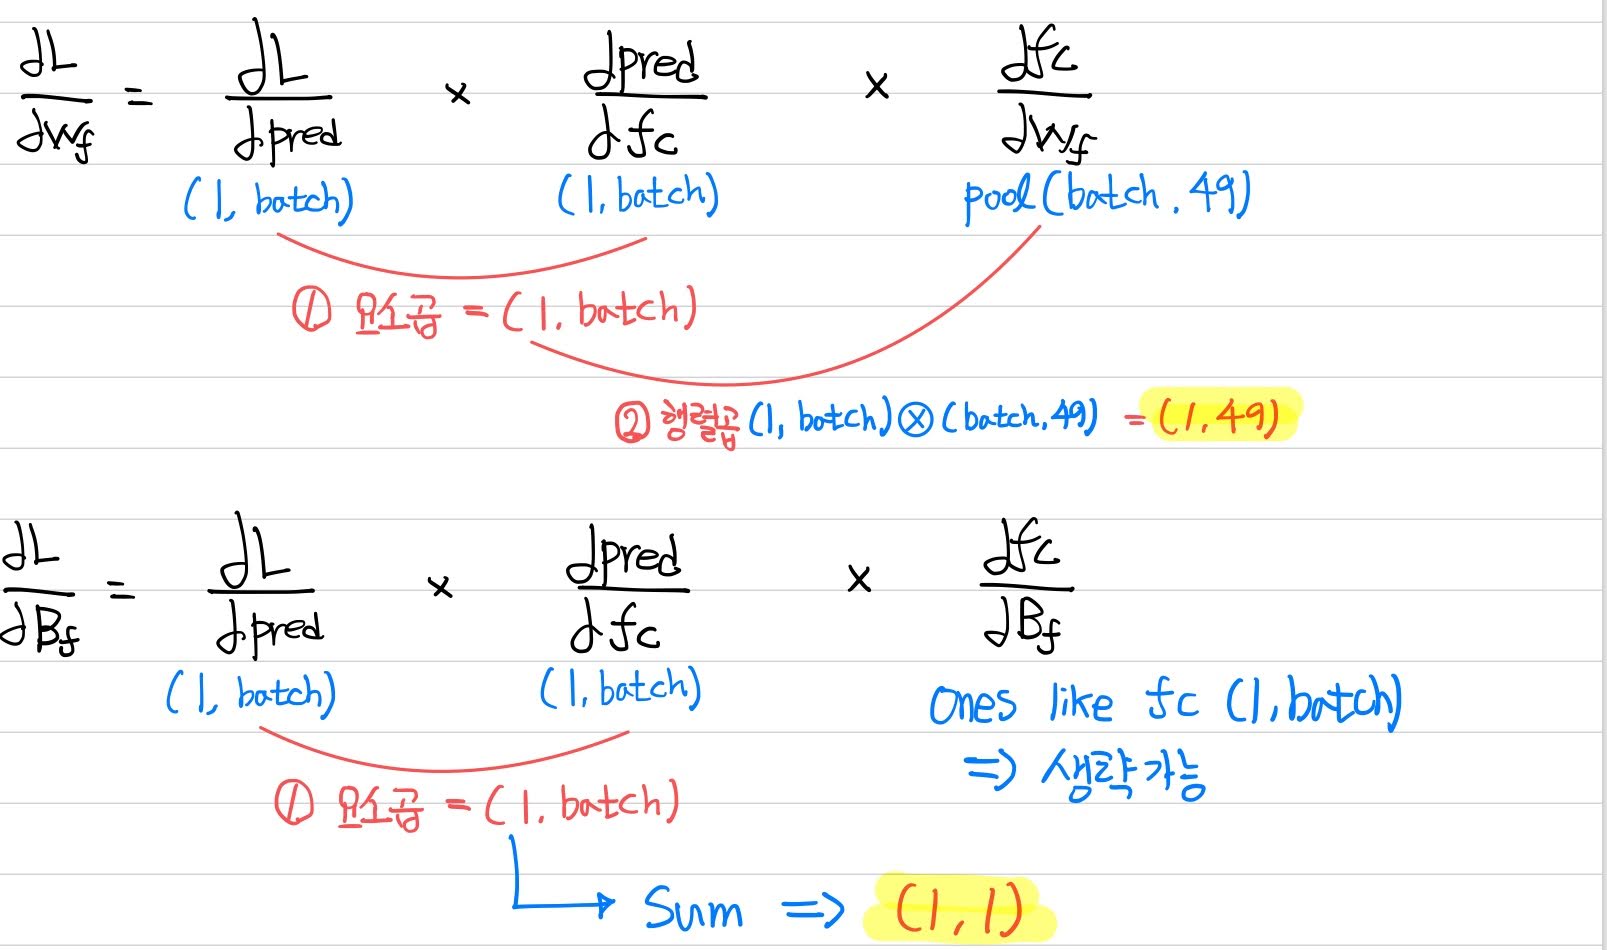 dL/dWf = dL/dpred × dpred/dfc × dfc/dWf
(1, batch) (1, batch) pool(batch, 49)
① 요소곱 = (1, batch)
② 행렬곱 (1, batch) ⊗ (batch, 49) = (1, 49)
dL/dBf = dL/dpred × dpred/dfc × dfc/dBf
(1, batch) (1, batch) Ones like fc (1, batch)
⇒ 생략가능
① 요소곱 = (1, batch)
→ Sum ⇒ (1, 1)